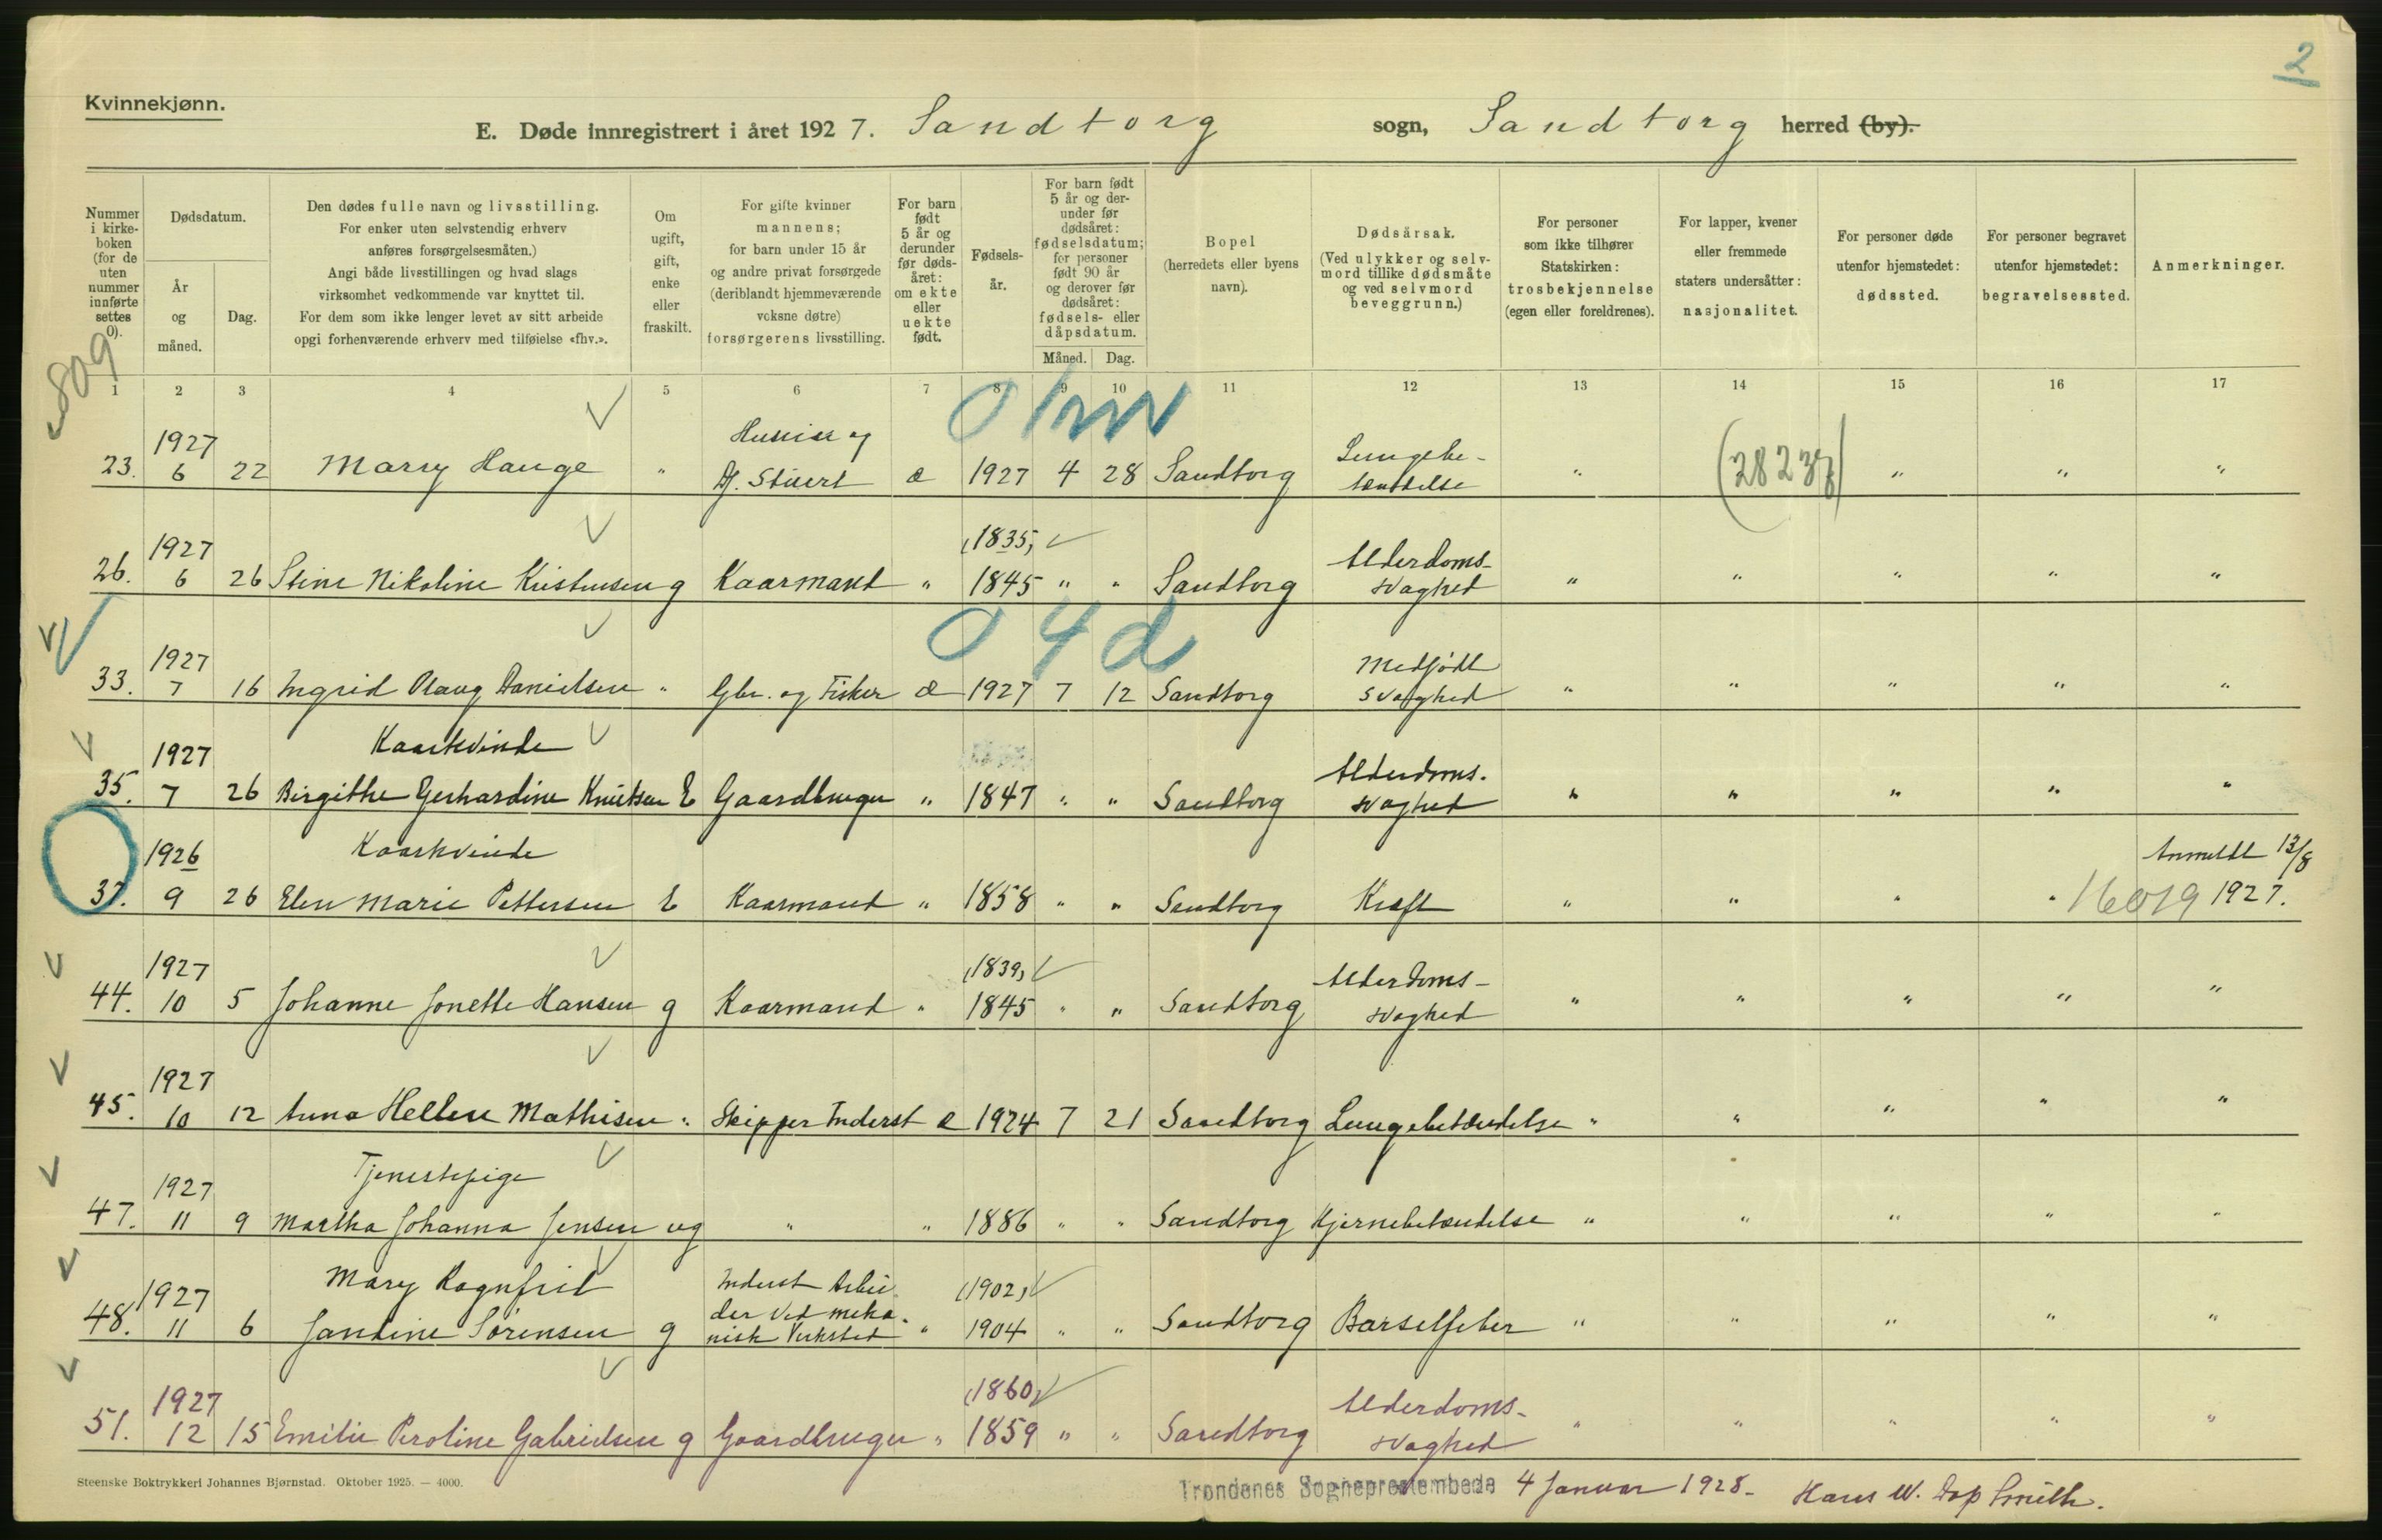 2
Kvinnekjønn.
E. Døde innregistrert i året 1927. Sandtorg sogn, Sandtorg herred (by).
Nummer i kirkeboken (for de uten nummer innførte settes 0).
Dødsdatum.
År og måned.
Dag.
Den dødes fulle navn og livsstilling.
For enker uten selvstendig erhverv
anføres forsørgelsesmåten.)
Angi både livsstillingen og hvad slags
virksomhet vedkommende var knyttet til.
For dem som ikke lenger levet av sitt arbeide
opgi forhenværende erhverv med tilføielse «fhv.».
Om ugift, gift, enke eller fraskilt.
For gifte kvinner
mannens;
for barn under 15 år
og andre privat forsørgede
(deriblandt hjemmeværende
voksne døtre)
forsørgerens livsstilling.
For barn født 5 år og derunder før dødsåret: om ekte eller uekte født.
Fødselsår.
For barn født 5 år og derunder før dødsåret: fødselsdatum; for personer født 90 år og derover før dødsåret: fødsels- eller dåpsdatum.
Måned. Dag.
Bopel
(herredets eller byens
navn).
Dødsårsak.
(Ved ulykker og selvmord tillike dødsmåte og ved selvmord beveggrunn.)
For personer
som ikke tilhører
Statskirken:
trosbekjennelse
(egen eller foreldrenes).
For lapper, kvener
eller fremmede
staters undersåtter:
nasjonalitet.
For personer døde
utenfor hjemstedet:
dødssted.
For personer begravet
utenfor hjemstedet:
begravelsessted.
Anmerkninger.
809
1 2 3 4 5 6 7 8 9 10 11 12 13 14 15 16 17
0 1m
23. 1927 6 22 Marry Hauge " og Stuert æ 1927 4 28 Sandtorg Lungebetændelse " (28237) " " "
26. 1927 6 26 Stine Nikoline Kristensen g Kaarmand " (1835) 1845 " " Sandtorg Alderdoms-svaghed " " " " "
0 4 d
33. 1927 7 16 Ingrid Olaug Danielsen " Gbr. og Fisker æ 1927 7 12 Sandtorg Medfødt svaghed " " " " "
35. 1927 7 26 Kaarkvinde Birgithe Gerhardine Knutsen E Gaardbruger " 1847 " " Sandtorg Alderdoms-svaghed " " " " "
37. 1926 9 26 Kaarkvinde Elen Marie Pettersen E Kaarmand " 1858 " " Sandtorg Kræft " " " " Anmeldt 13/8 1927. 16019
44. 1927 10 5 Johanne Jonette Hansen g Kaarmand " (1839) 1845 " " Sandtorg Alderdoms-svaghed " " " " "
45. 1927 10 12 Anna Hellen Mathisen " Skipper Inderst æ 1924 7 21 Sandtorg Lungebetændelse " " " " "
47. 1927 11 9 Tjenestepige Martha Johanna Jensen ug " " 1886 " " Sandtorg Hjernebetændelse " " " " "
48. 1927 11 6 Mary Ragnfrid Jandine Sørensen g Inderst Arbeider ved mekanisk Verksted " (1902) 1904 " " Sandtorg Barselfeber " " " " "
51. 1927 12 15 Emilie Peroline Gabrielsen g Gaardbruger " (1860) 1859 " " Sandtorg Alderdoms-svaghed " " " " "
Steenske Boktrykkeri Johannes Bjørnstad. Oktober 1925. — 4000.
Trondenes Sogneprestembede 4 Januar 1928. Hans W. Dop Smith.